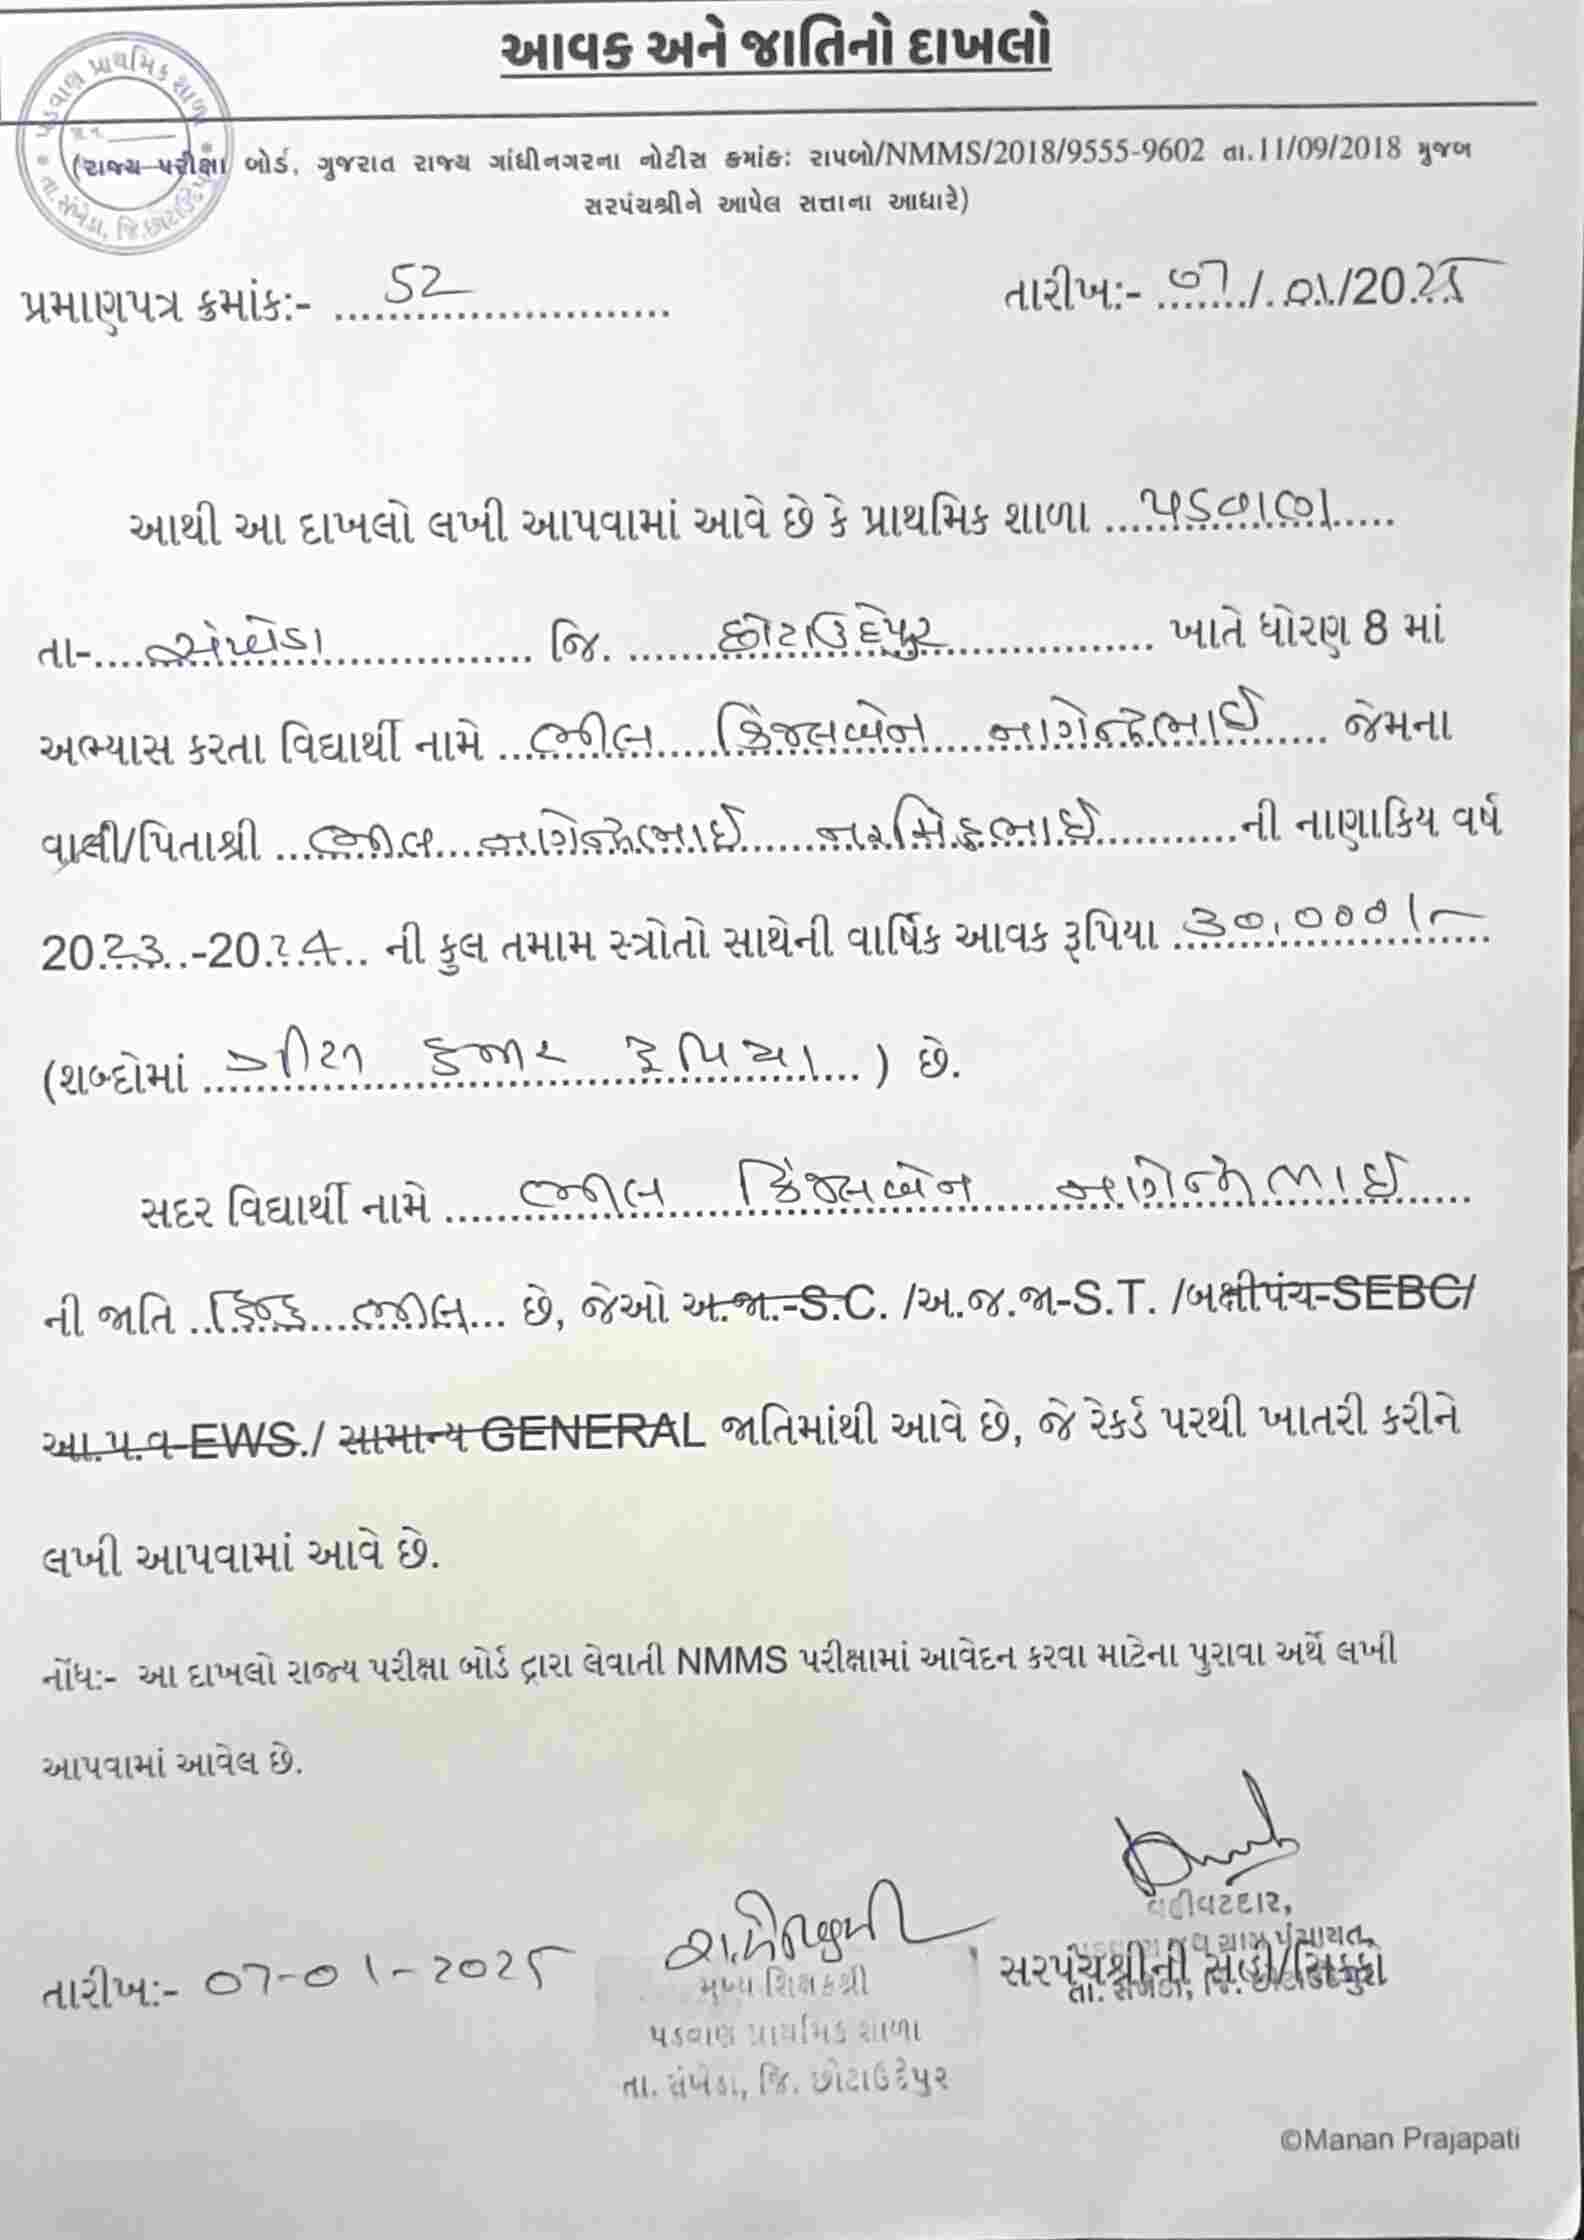 આવક અને જાતિનો દાખલો
પડવાણ પ્રાથમિક શાળા
તા.સંખેડા, જિ.છોટાઉદેપુર
(રાજ્ય પરીક્ષા બોર્ડ, ગુજરાત રાજ્ય ગાંધીનગરના નોટીસ ક્રમાંક: રાપબો/NMMS/2018/9555-9602 તા.11/09/2018 મુજબ
સરપંચશ્રીને આપેલ સત્તાના આધારે)
પ્રમાણપત્ર ક્રમાંક:- 52 તારીખ:- ૦7/.01/2025
આથી આ દાખલો લખી આપવામાં આવે છે કે પ્રાથમિક શાળા પડવાણ
તા-સંખેડા જિ. છોટાઉદેપુર ખાતે ધોરણ 8 માં
અભ્યાસ કરતા વિદ્યાર્થી નામે ભીલ કિંજલબેન નાગેન્દ્રભાઈ જેમના
વાલી/પિતાશ્રી ભીલ નાગેન્દ્રભાઈ નરસિંહભાઈ ની નાણાકિય વર્ષ
2023-2024 ની કુલ તમામ સ્ત્રોતો સાથેની વાર્ષિક આવક રૂપિયા 30,000/-
(શબ્દોમાં ત્રીસ હજાર રૂપિયા ) છે.
સદર વિદ્યાર્થી નામે ભીલ કિંજલબેન નાગેન્દ્રભાઈ
ની જાતિ હિન્દુ ભીલ છે, જેઓ અ.જા.-S.C. /અ.જ.જા-S.T. /બક્ષીપંચ-SEBC/
આ.પ.વ-EWS./ સામાન્ય GENERAL જાતિમાંથી આવે છે, જે રેકર્ડ પરથી ખાતરી કરીને
લખી આપવામાં આવે છે.
નોંધ:- આ દાખલો રાજ્ય પરીક્ષા બોર્ડ દ્વારા લેવાતી NMMS પરીક્ષામાં આવેદન કરવા માટેના પુરાવા અર્થે લખી
આપવામાં આવેલ છે.
તારીખ:- 07-01-2025
મુખ્ય શિક્ષકશ્રી
પડવાણ પ્રાથમિક શાળા
તા. સંખેડા, જિ. છોટાઉદેપુર
વહીવટદાર,
ગ્રામ પંચાયત,
સરપંચશ્રીની સહી/સિક્કો
તા. સંખેડા, જિ. છોટાઉદેપુર
©Manan Prajapati